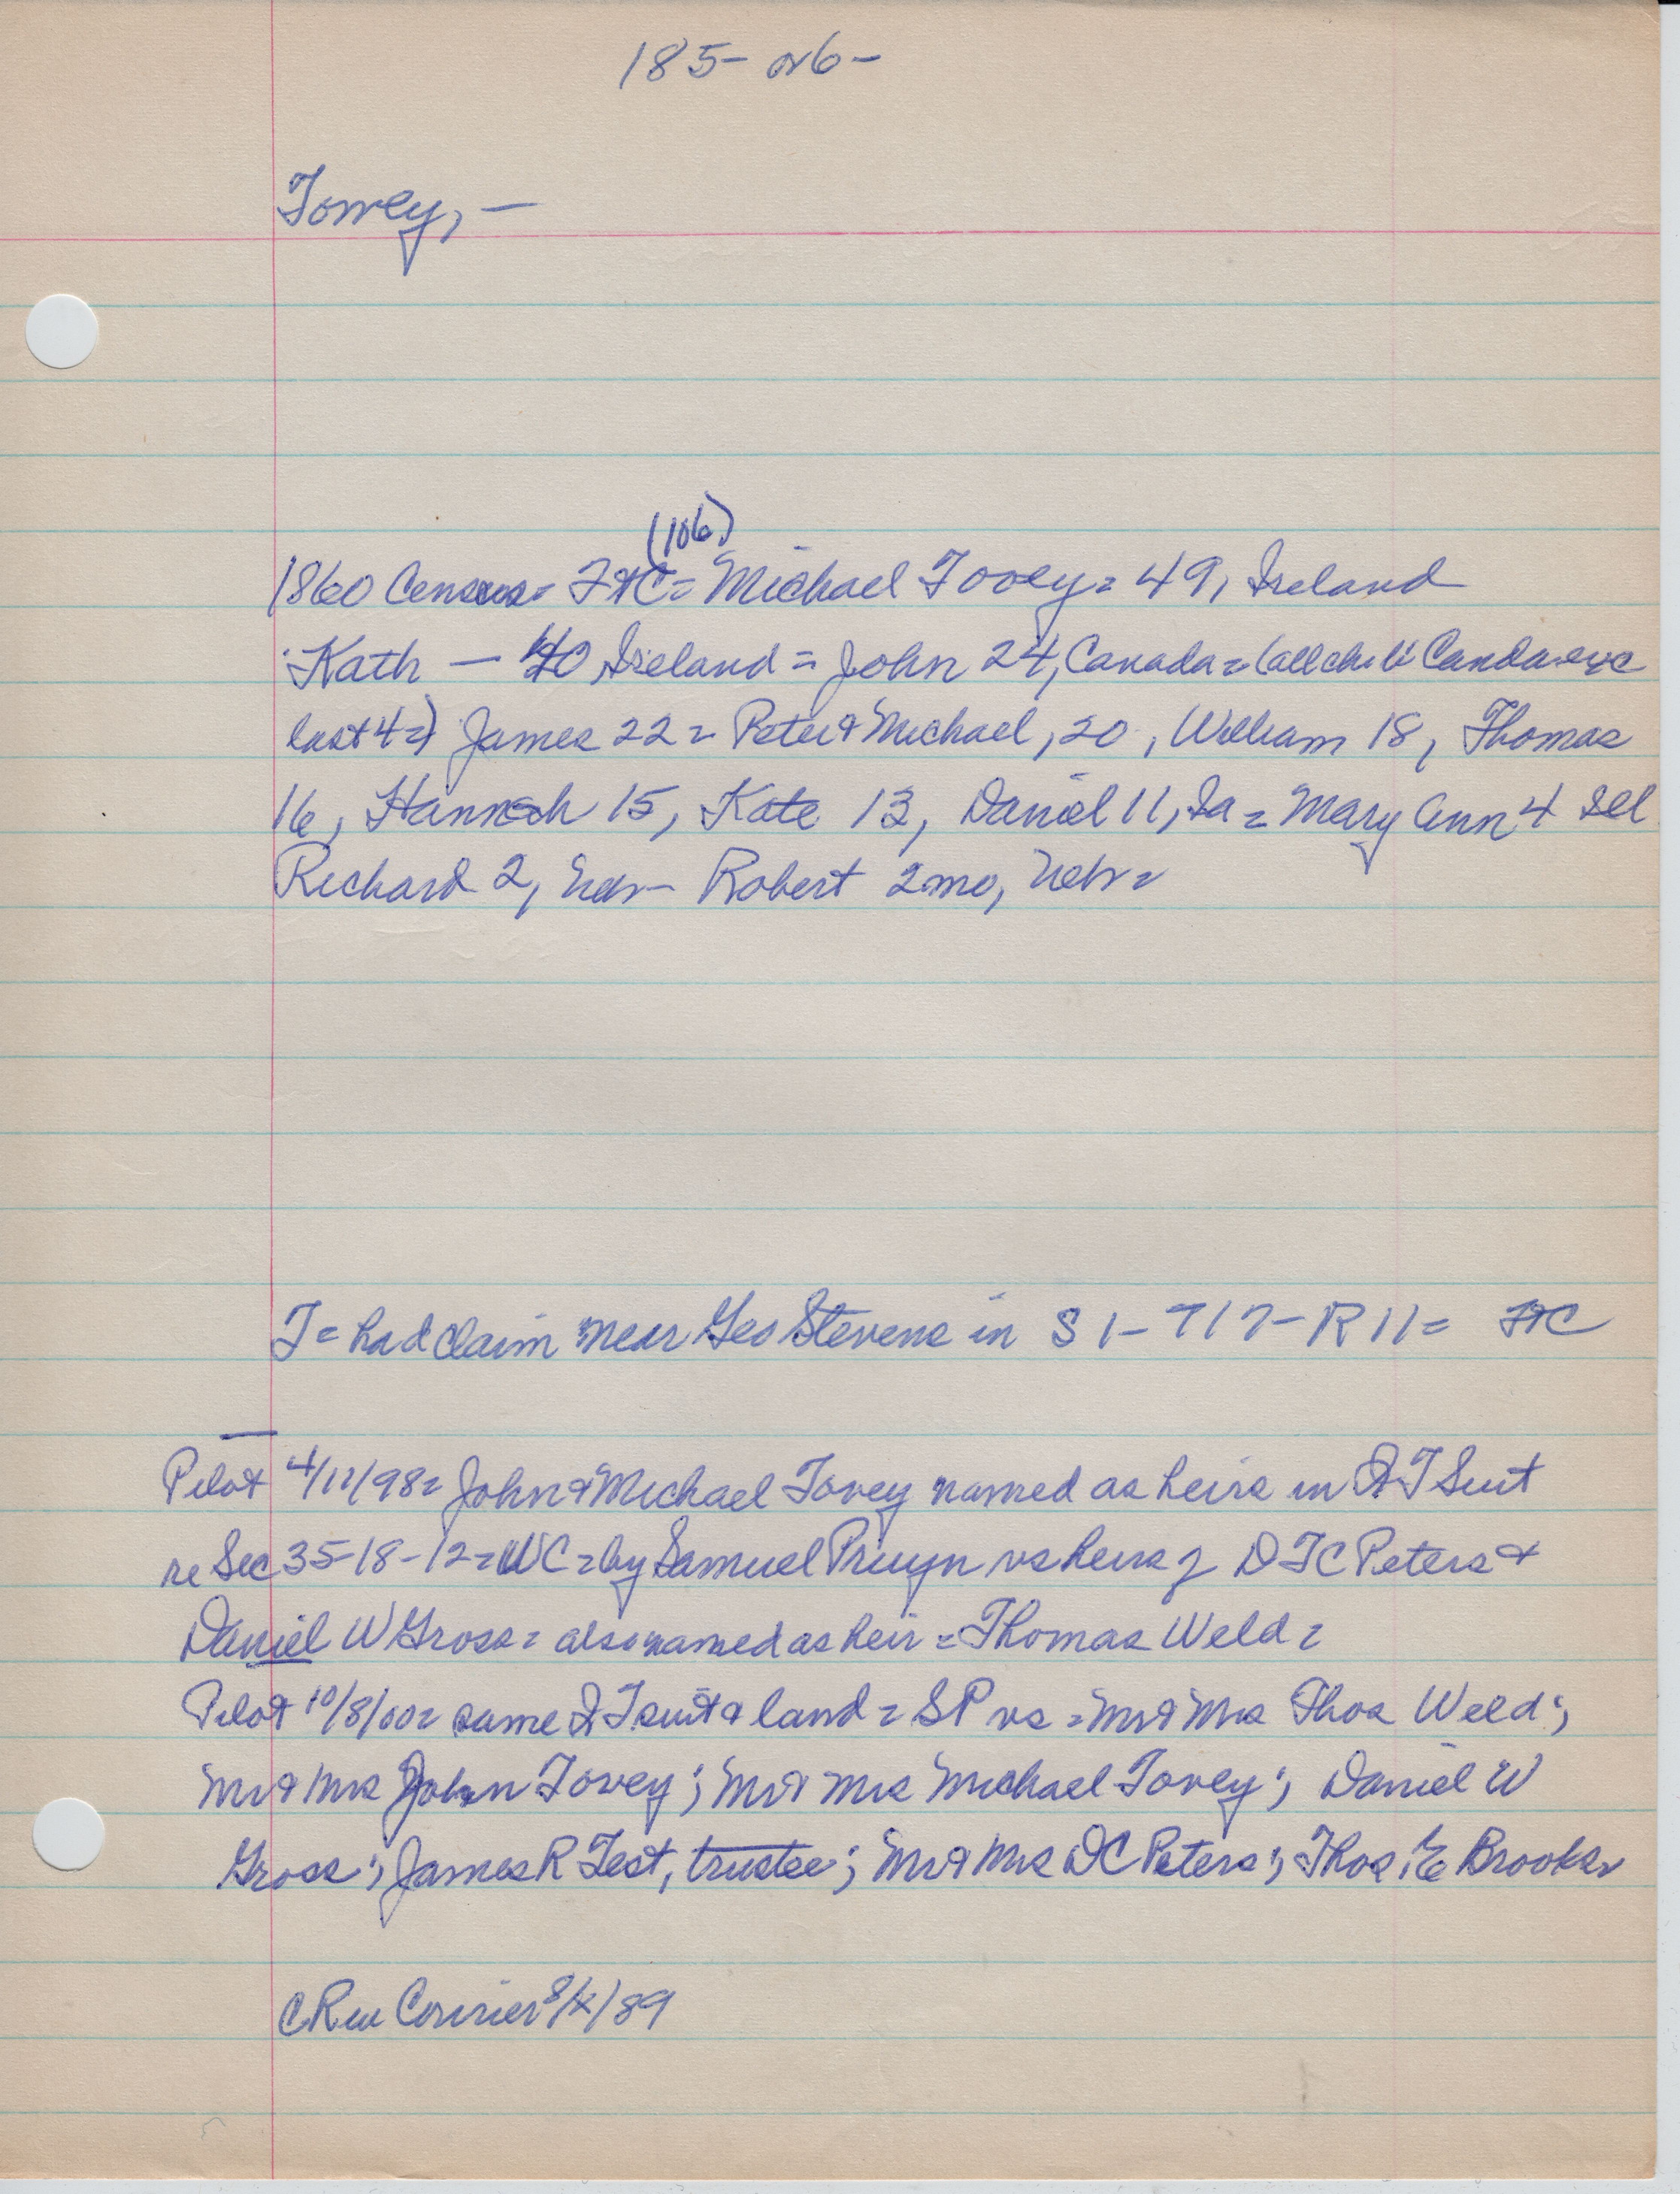 185- or 6-
Tovey, -
(106)
1860 Census = FtC = Michael Tovey = 49, Ireland
Kath - 40 Ireland = John 24, Canada = (all ch b Canda exc
last 4 =) James 22 = Peter & Michael, 20, William 18, Thomas
16, Hannah 15, Kate 13, Daniel 11, Ia = Mary Ann 4 Ill
Richard 2, Nebr - Robert 2 mo, Nebr =
T = had claim near Geo Stevens in S 1 - T17 - R 11 = FtC
Pilot 4/12/98 = John & Michael Tovey named as heirs in QT Suit
re Sec 35-18-12 = WC = by Samuel Pruyn vs heirs of DTC Peters &
Daniel W Gross = also named as heir = Thomas Weld =
Pilot 10/8/00 = same QT suit & land = SP vs = Mr & Mrs Thos Weld;
Mr & Mrs John Tovey; Mr & Mrs Michael Tovey; Daniel W
Gross; James R Test, trustee; Mr & Mrs DC Peters; Thos E Brooks
CR in Courier 8/ /89